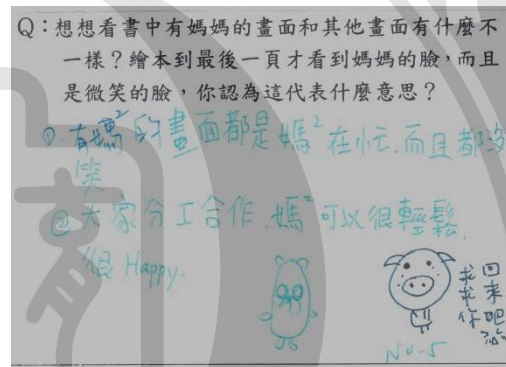 Q：想想看書中有媽媽的畫面和其他畫面有什麼不
一樣？繪本到最後一頁才看到媽媽的臉，而且
是微笑的臉，你認為這代表什麼意思？
① 有媽²的畫面都是媽²在忙,而且都沒
笑
② 大家分工合作,媽²可以很輕鬆,
很 Happy.
回來吧
求求你
NO-5